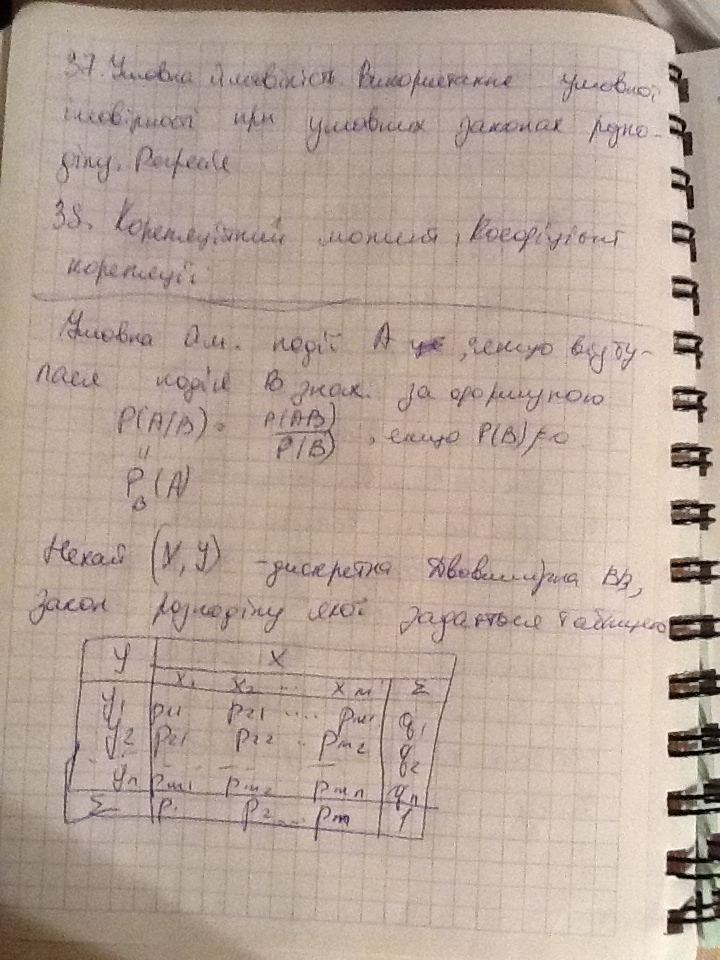 37. Умовна ймовірність. Використання умовної
ймовірності при умовних законах розпо-
ділу.
38. Кореляційний момент, коефіцієнт
кореляції.
Умовна йм. події A, якщо відбу-
лась подія B знах. за формулою
P(A/B) = P(AB)/P(B), якщо P(B)≠0
"
P_B(A)
Нехай (X, Y) - дискретна двовимірна ВВ,
закон розподілу якої задається таблицею
Y X
x₁ x₂ ... xm Σ
y₁ p₁₁ p₂₁ .... pm₁ q₁
y₂ p₂₁ p₂₂ .. pm₂ q₂
yn pm₁ pm₂ pmn qn
Σ p₁ p₂ ... pm 1